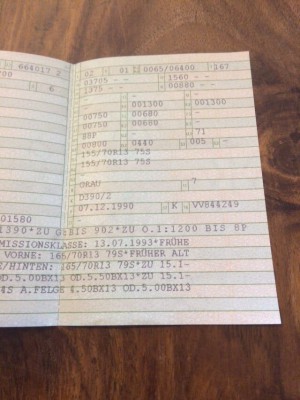 664017 2 02 01 0065/06400 167
700 03705 - - 1560 - -
6 1375 - - 00880 - -
- -
- 001300 001300
00750 00680 -
00750 00680 -
BBF 71
00800 0440 005 -
155/70R13 75S
155/70R13 75S
GRAU 7
D390/2
07.12.1990 K VV844249
01580
1390*ZU 902*ZU O.1:1200 BIS 8P
MISSIONSKLASSE: 13.07.1993*FRÜHE
VORNE: 165/70R13 79S*FRÜHER ALT
/HINTEN: 165/70R13 79S*ZU 15.1-
OD.5.00BX13 OD.5.50BX13*ZU 15.1-
4S A.FELGE 4.50BX13 OD.5.00BX13